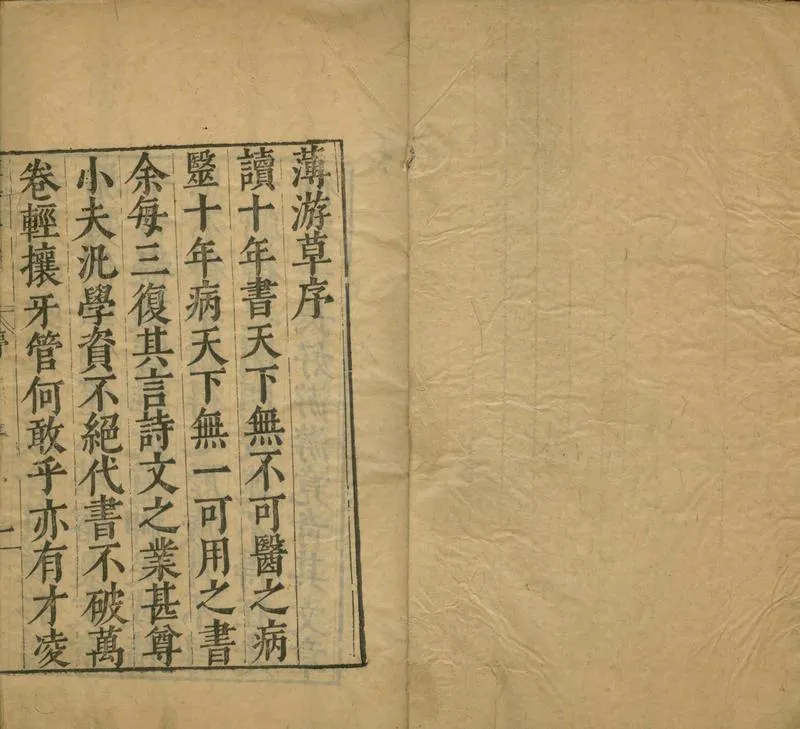 薄游草序
讀十年書天下無不可醫之病
毉十年病天下無一可用之書
余每三復其言詩文之業甚尊
小夫汎學資不絕代書不破萬
卷輕攘牙管何敢乎亦有才凌